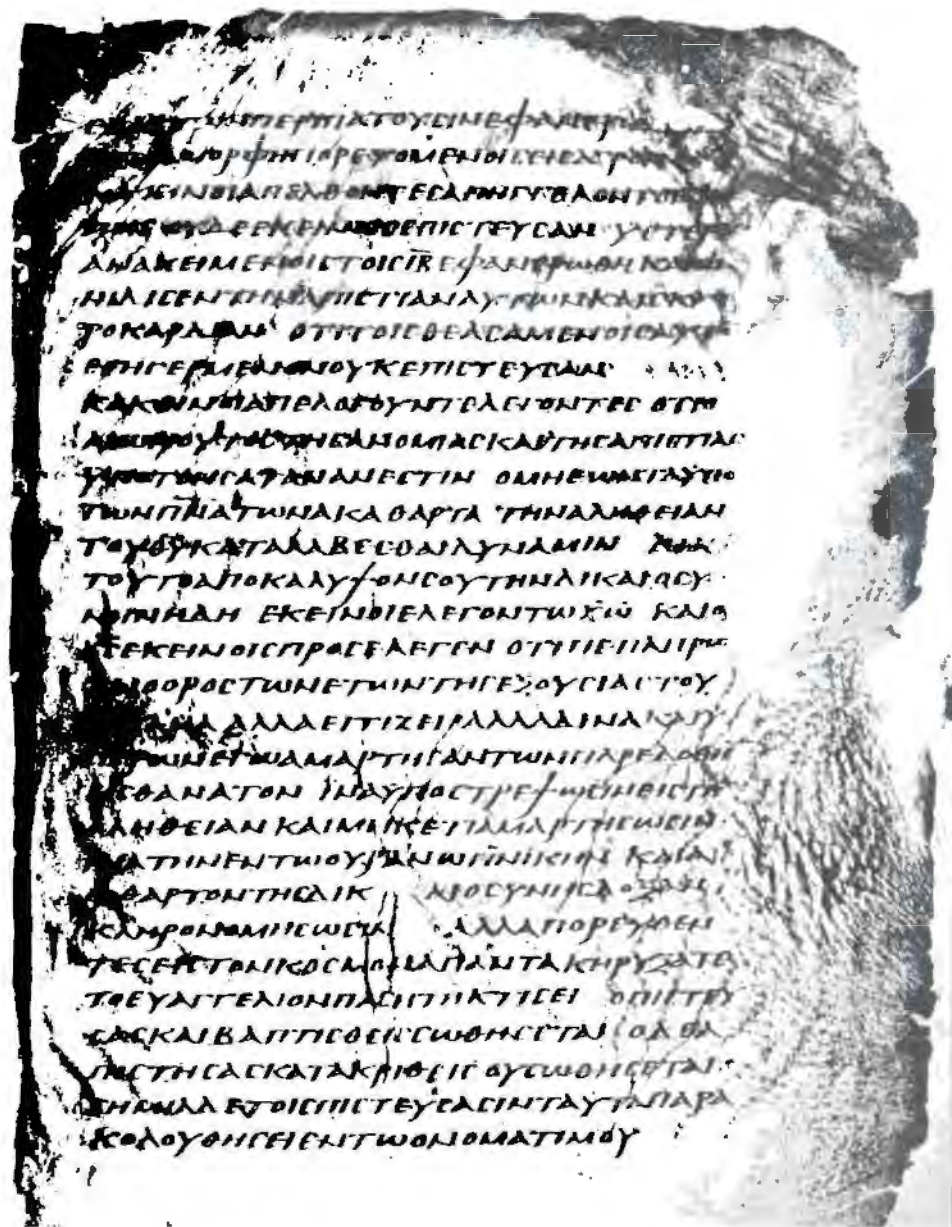 ΠΕΡΙΠΑΤΟΥCΙΝΕΦΑΝΕΡ
ΜΟΡΦΗΠΟΡΕΥΟΜΕΝΟΙCΕΙCΑΓΡ
ΚΕΙΝΟΙΑΠΕΛΘΟΝΤΕCΑΠΗΓΓΙΛΟΝΤΟΙC
ΠΟΙCΟΥΔΕΕΚΕΙΝΟΙCΕΠΙCΤΕΥCΑΝ ΥCΤΕΡ
ΑΝΑΚΕΙΜΕΝΟΙCΤΟΙCΙΑ̅ΕΦΑΝΕΡΩΘΗΚΑΙΩ
ΝΙΔΙCΕΝΤΗΝΑΠΙCΤΙΑΝΑΥΤΩΝΚΑΙCΚΛΗ
ΡΟΚΑΡΔΙΑΝ ΟΤΙΤΟΙCΘΕΑCΑΜΕΝΟΙCΑΥΤΟ
ΕΓΗΓΕΡΜΕΝΟΝΟΥΚΕΠΙCΤΕΥCΑΝ
ΚΑΚΕΙΝΟΙΑΠΕΛΟΓΟΥΝΤΕΛΕΓΟΝΤΕC ΟΤΙΟ
ΑΙΩΝΟΥΤΟCΤΗCΑΝΟΜΙΑCΚΑΙΤΗCΑΠΙCΤΙΑC
ΥΠΟΤΟΝCΑΤΑΝΑΝΕCΤΙΝ ΟΜΗΕΩΝΤΑΥΠΟ
ΤΩΝΠ̅Ν̅ΑΤΩΝΑΚΑΘΑΡΤΑ ΤΗΝΑΛΗΘΕΙΑΝ
ΤΟΥΘ̅Υ̅ΚΑΤΑΛΑΒΕCΘΑΙΔΥΝΑΜΙΝ ΔΙΑ
ΤΟΥΤΟΑΠΟΚΑΛΥΨΟΝCΟΥΤΗΝΔΙΚΑΙΟCΥ
ΝΗΝΗΔΗ ΕΚΕΙΝΟΙΕΛΕΓΟΝΤΩΧ̅Ω̅ ΚΑΙΟ
Χ̅C̅ΕΚΕΙΝΟΙCΠΡΟCΕΛΕΓΕΝ ΟΤΙΠΕΠΛΗΡΩ
ΤΑΙΟΟΡΟCΤΩΝΕΤΩΝΤΗCΕΞΟΥCΙΑCΤΟΥ
CΑΤΑΝΑ ΑΛΛΑΕΓΓΙΖΕΙΑΛΛΑΔΙΝΑΚΑΙΥ
ΠΕΡΩΝΕΓΩΑΜΑΡΤΗCΑΝΤΩΝΠΑΡΕΔΟΘΗ
ΕΙCΘΑΝΑΤΟΝ ΙΝΑΥΠΟCΤΡΕΨΩCΙΝΕΙCΤΗ
ΑΛΗΘΕΙΑΝ ΚΑΙΜΗΚΕΤΙΑΜΑΡΤΗCΩCΙΝ
ΙΝΑΤΗΝΕΝΤΩΟΥΡΑΝΩΠ̅Ν̅ΙΚΗΝ ΚΑΙΑ
ΦΘΑΡΤΟΝΤΗCΔΙΚ ΑΙΟCΥΝΗCΔΟΞΑΝ
ΚΛΗΡΟΝΟΜΗCΩCΙΝ ΑΛΛΑΠΟΡΕΥΘΕΝ
ΤΕCΕΙCΤΟΝΚΟCΜΟΝΑΠΑΝΤΑΚΗΡΥΞΑΤΕ
ΤΟΕΥΑΓΓΕΛΙΟΝΠΑCΗΤΗΚΤΙCΕΙ ΟΠΙCΤΕΥ
CΑCΚΑΙΒΑΠΤΙCΘΕΙCCΩΘΗCΕΤΑΙ ΟΔΕΑ
ΠΙCΤΗCΑCΚΑΤΑΚΡΙΘΕΙCΟΥCΩΘΗCΕΤΑΙ
CΗΜΙΑΔΕΤΟΙCΠΙCΤΕΥCΑCΙΝΤΑΥΤΑΠΑΡΑ
ΚΟΛΟΥΘΗCΕΙΕΝΤΩΟΝΟΜΑΤΙΜΟΥ